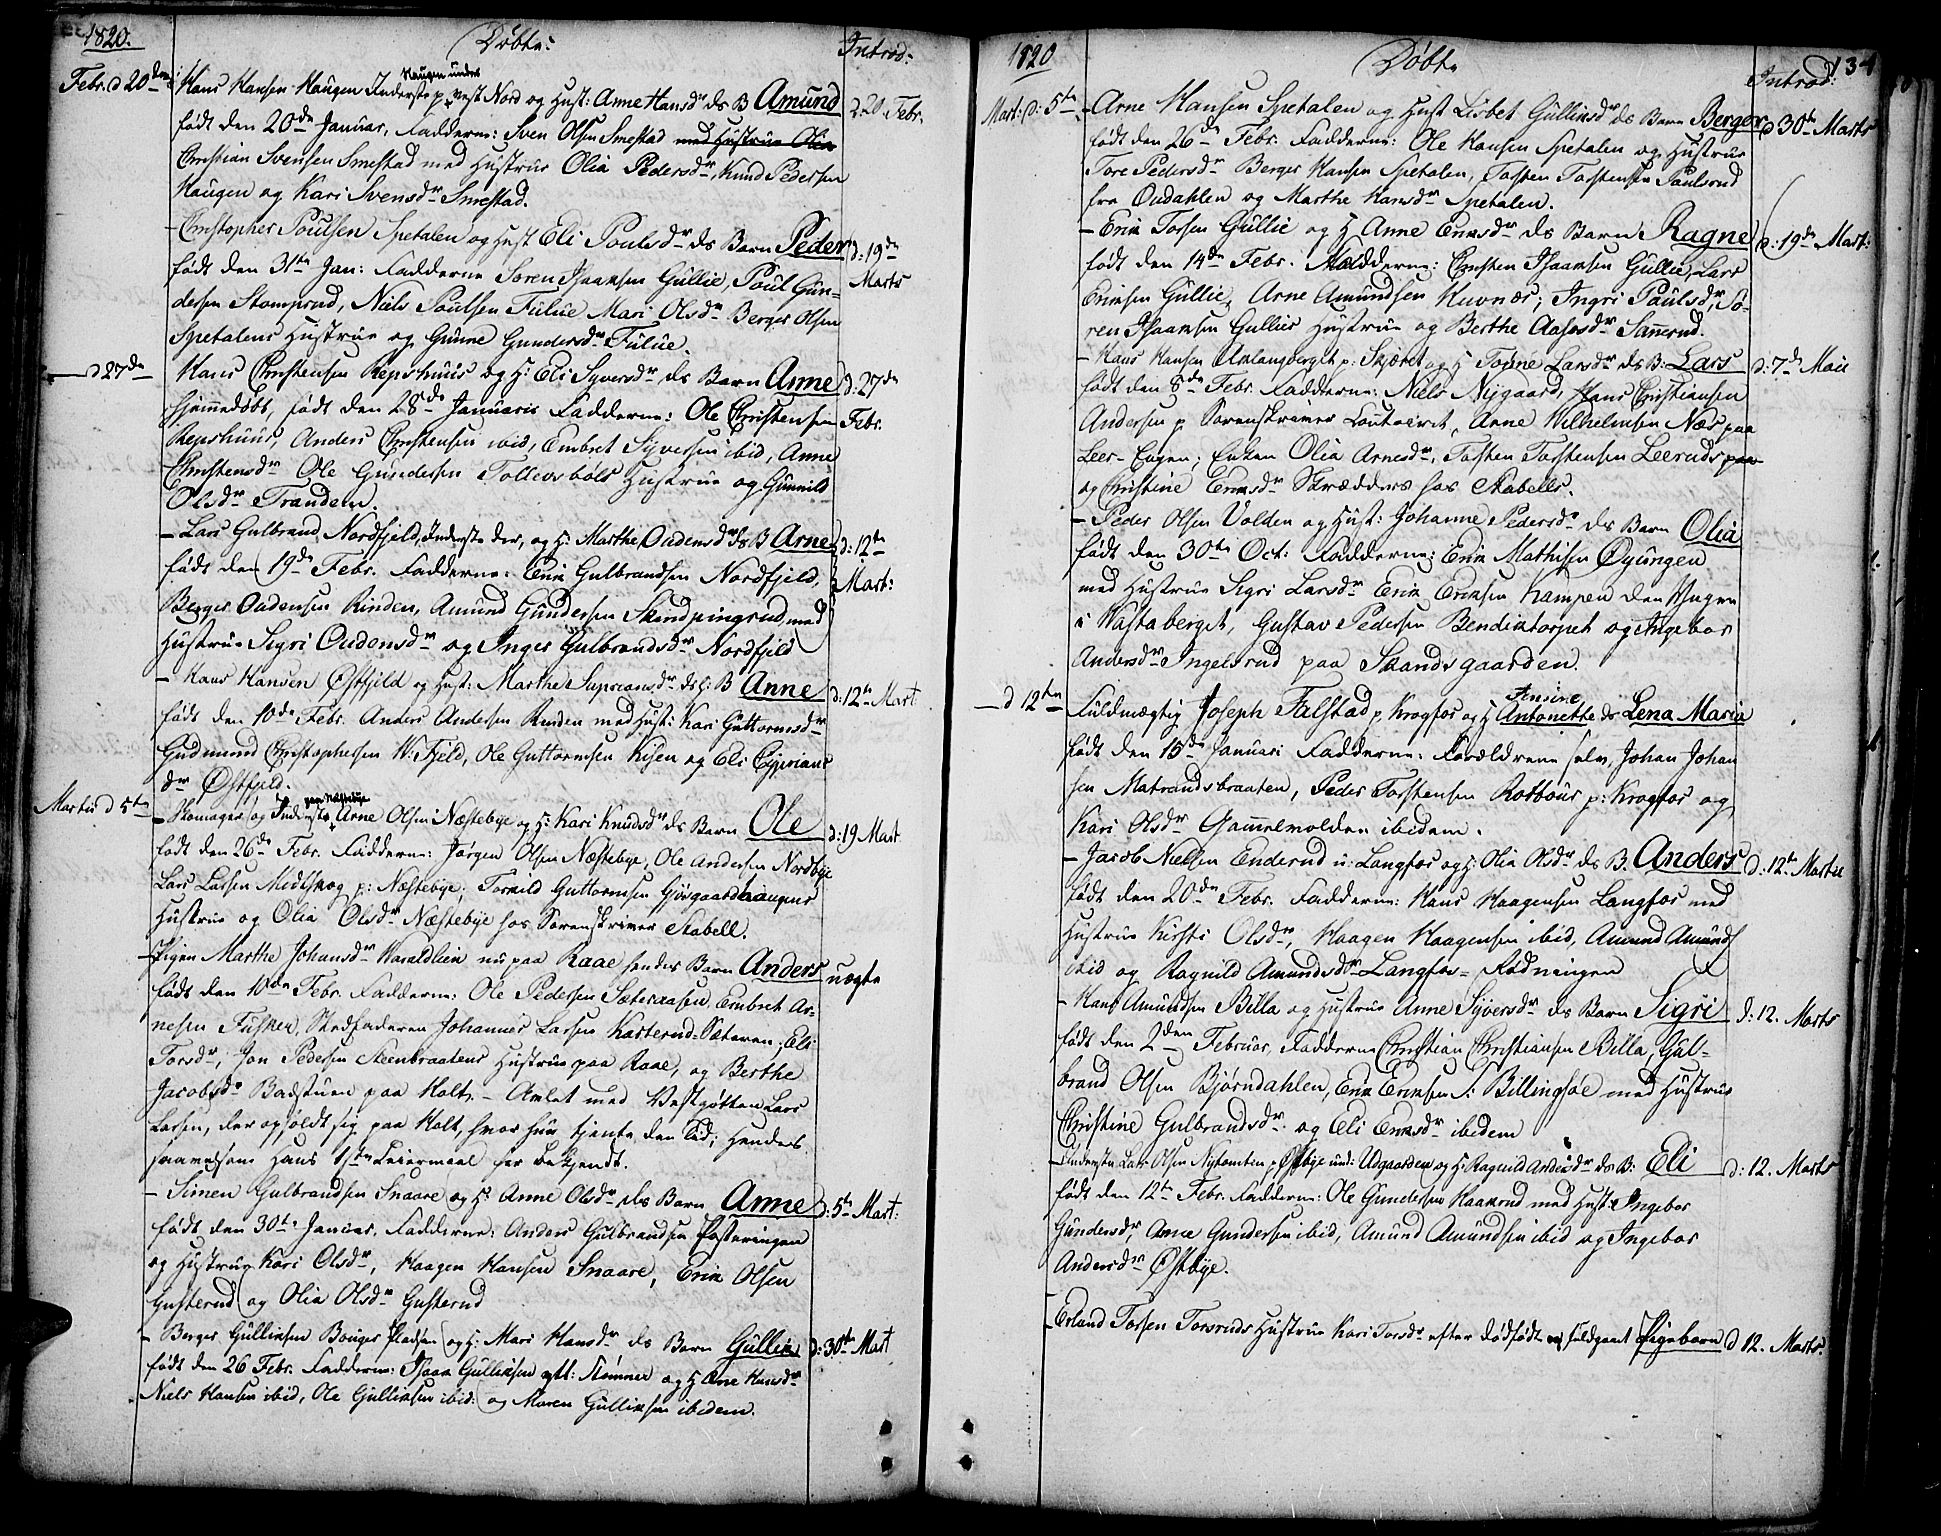 1820.
Døbte:
Introd:
Febr. d 20de
Hans Hansen Haugen Inderste p. Haugen under vest Nord og Hust: Anne Hansdr ds B Amund
d: 20 Febr.
født den 20de Januar, Fadderne: Sven Olsen Smestad med Hustrue Olia
Christian Svensen Smestad med Hustrue Olia Pedersdr, Knud Pedersen
Haugen og Kari Svensdr Smestad.
- Christopher Poulsen Spetalen og Hust Eli Poulsdr ds Barn Peder
d: 19de Marts
født den 31te Jan: Fadderne Søren Isaaksen Gullie, Poul Gun-
dersen Stomprud, Niels Poulsen Fulue Mari Olsdr Berger Olsen
Spetalens Hustrue og Gunne Gundersdr Fulue.
d 27de
Hans Christensen Repshuus og H: Eli Syversdr ds Barn Anne
d: 27de Febr.
hjemmedøbt, født den 28de Januarii Fadderne: Ole Christensen
Repshuus, Anders Christensen ibid, Embret Syversen ibid, Anne
Christensdr Ole Gundersen Tollevsbøls Hustrue og Gunnild
Olsdr Tranden.
- Lars Gulbrand. Nordfjeld, Inderste der, og H: Marthe Oudensdr ds B Arne
d: 12te Mart:
født den 19de Febr. Fadderne: Erik Gulbrandsen Nordfjeld,
Berger Oudensen Rinden, Amund Gundersen Skindpingrud med
Hustrue Sigri Oudensdr og Inger Gulbrandsdr Nordfjeld
- Hans Hansen Østfjeld og Hust: Marthe Supriansdr ds: B Anne
d: 12te Mart
født den 10de Febr. Anders Andersen Rinden med Hust: Kari Guttormsdr
Gudmund Christophersen W. Fjeld, Ole Guttormsen Kisen og Eli Cyprians
dr Østfjeld.
Martii d 5te
- Skomager og Inderste paa Næstebye Arne Olsen Næstebye og H: Kari Knudsdr ds Barn Ole
d: 19 Mart
født den 26de Febr. Fadderne: Jørgen Olsen Næstebye, Ole Andersen Nordbye
Lars Larsen Midtskog p: Næstebye; Tornild Guttormsen Gjøsgaardhaugens
Hustrue og Olia Olsdr Næstebye hos Sorenskriver Stabell.
- Pigen Marthe Johansdr Haraldlien nu paa Raae hendes Barn Anders
uægte
født den 10de Febr. Fadderne: Ole Pedersen Sæteraasen, Embret Ar-
nesen Fusker, Stedfaderen Johannes Larsen Kasterud-Sæteren; Eli
Torsdr, Jon Pedersen Steenbraatens Hustrue paa Raae, og Berthe
Jacobsdr Badstuen paa Holt. - Avlet med Vestgøtten Lars
Larsen, der opholdt sig paa Holt, hvor hun tjente den Tid; Hendes
saavelsom hans 1ste Leiermaal her bekjendt.
- Simen Gulbrandsen Snaare og H: Anne Olsdr, ds Barn Anne
d: 5te Mart:
født den 30te Januar, Fadderne: Anders Gulbrandsen Posteringen
og Hustrue Kari Olsdr, Haagen Hansen Snaare, Erik Olsen
Gusterud og Olia Olsdr Gusterud
- Berger Gulliksen Bouger Pladsen og H: Mari Hansdr ds Barn Gullik
d: 30te Mart
født den 26 Febr. Fadderne: Isaak Gulliksen ytt: Stømner og H Ane Hansdr
Niels Hansen ibid, Ole Gulliksen ibid: og Maren Gulliksen ibidem.
1820
Døbte
Introd:
134
Mart: d: 5te
- Arne Hansen Spetalen og Hust Lisbet Gulliksdr ds Barn Berger
d 30te Marts
født den 26de Febr. Fadderne: Ole Hansen Spetalen og Hustrue
Tore Pedersdr Berger Hansen Spetalen, Tosten Tostensen Paulsrud
fra Oudahlen og Marthe Hansdr Spetalen.
- Erik Torsen Gullie og H Anne Eriksdr ds Barn Ragne
d: 19de Mart:
født den 14de Febr. Fadderne: Christen Isaaksen Gullie, Lars
Eriksen Gullie, Arne Amundsen Kuvnæs; Ingri Paulsdr, Sø-
ren Isaaksen Gullies Hustrue og Berthe Aasesdr Sanerud.
- Hans Hansen Aklangberget p. Skjæret og H Tonne Larsdr ds B: Lars
d: 7de Maii
født den 8de Febr. Fadderne: Niels Nygaard, Hans Christiansen
Andersen p. Sorenskriver Contoiret, Arne Wilhelmsen Næs paa
Leer-Eugen; Enken Olia Arnesdr, Tosten Torstensen Leeruds paa
og Christine Eriksdr Skrædders hos Stabells.
- Peder Olsen Volden og Hust: Johanne Pedersdr ds Barn Olia
født den 30te Oct: Fadderne: Erik Mathisen Øyungen
med Hustrue Sigri Larsdr Erik Eriksen Kampen den Yngre
i Hastaberget, Gustav Pedersen Bendiktorpet og Ingebor
Andersdr Ingelsrud paa Strandsgaarden.
d 12te
Fuldmægtig Joseph Falstad p. Krogfos og H Ansine Antonette ds Lena Maria
født den 15de Januari Fadderne: Forældrene selv, Johan Johan
sen Matrandsbraaten, Peder Torstensen Rotbous p: Krogfos og
Kari Olsdr Gammelvolden ibidem.
- Jacob Nielsen Enderud u: Langfos og H: Olia Olsdr ds B. Anders
d: 12te Martii
født den 20de Febr. Fadderne: Hans Haagensen Langfos med
Hustrue Kirsti Olsdr, Haagen Haagensen ibid, Amund Amunds
ibid og Ragnild Amundsdr Langfos-Rødningen
- Hans Amundsen Billa og Hustrue Anne Syversdr ds Barn Sigri
d: 12. Marts
født den 2den Februar, Fadderne Christian Christiansen Billa, Gul-
brand Olsen Bjørndahlen, Erik Eriksen S: Billingsøe med Hustrue
Christine Gulbrandsdr og Eli Eriksdr ibidem
- Inderste Lars Olsen Nytomten p Østbye und: Udgaarden og H: Ragnild Andersdr ds B: Eli
d: 12. Marts
født den 12te Febr. Fadderne: Ole Gundersen Haakrud med Hust: Ingebor
Gundersdr, Arne Gundersen ibid, Amund Amundsen ibid og Ingebor
Andersdr Østbye.
- Erland Torsen Torsruds Hustrue Kari Torsdr efter dødfødt fuldgaaet Pigebarn
d 12. Marts.